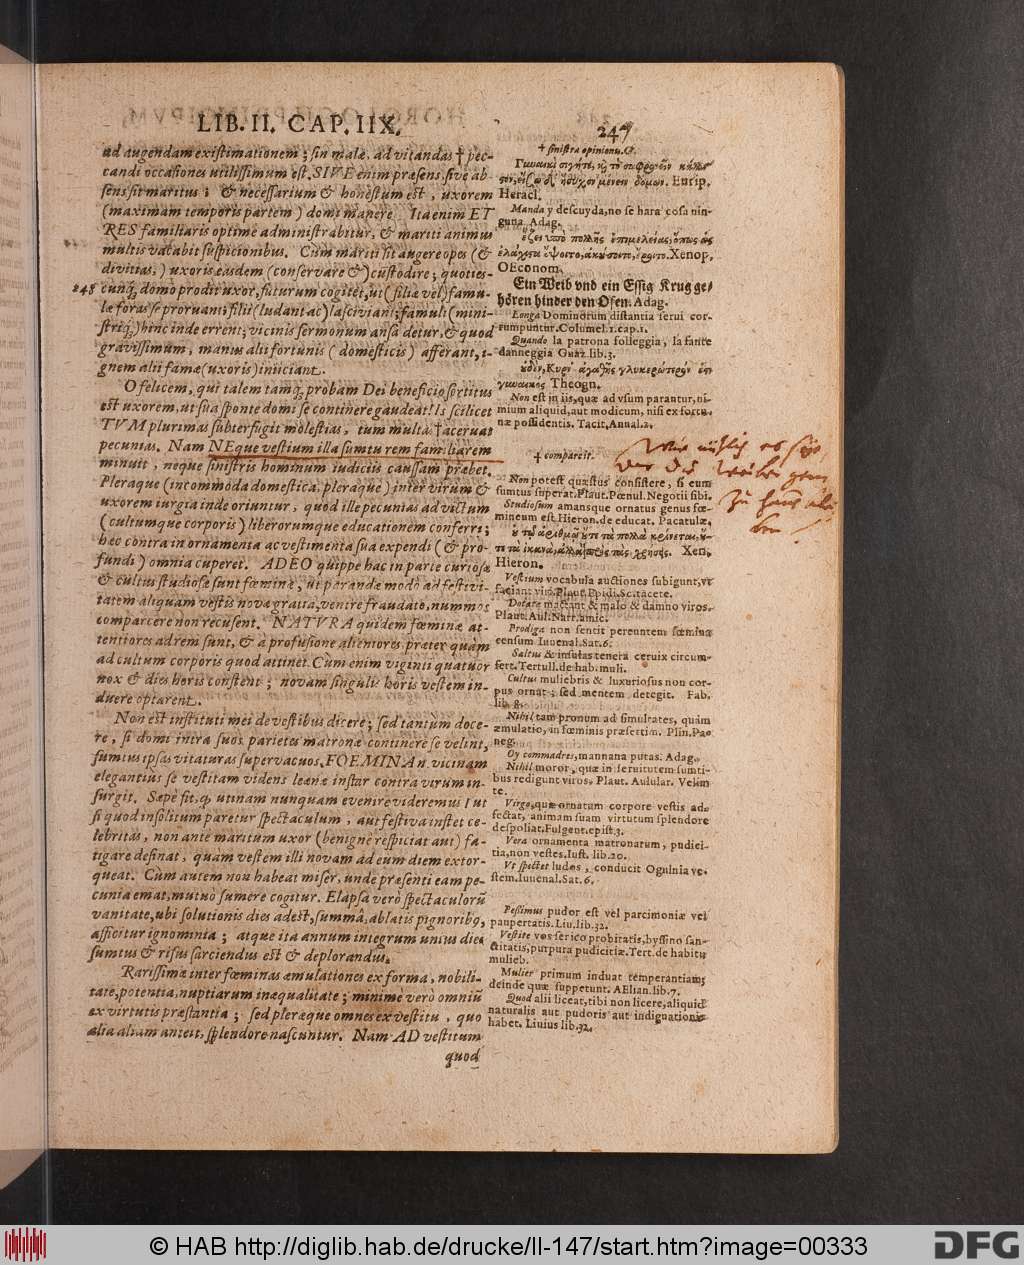 LIB. II. CAP. IIX.
247
ad augendam existimationem; sin malæ, ad vitandas † pec-
candi occasiones utilissimum est. SIVE enim præsens, sive ab-
sens sit maritus; & necessarium & honestum est, uxorem
(maximam temporis partem) domi manere. Ita enim ET
RES familiaris optimè administrabitur, & mariti animus
multis vacabit suspicionibus. Cùm mariti sit augere opes (&
divitias,) uxoris easdem (conservare &) custodire; quoties-
248 cunq; domo prodit uxor, futurum cogitet, ut (filiæ vel) famu-
læ foras se proruant: filii (ludant ac) lasciviant; famuli (mini-
striq;) hinc inde errent; vicinis sermonum ansa detur, & quod
gravissimum, manus alii fortunis (domesticis) afferant, i-
gnem alii famæ (uxoris) iniiciant.
O felicem, qui talem tamq; probam Dei beneficio sortitus
est uxorem, ut sua sponte domi se continere gaudeat! Is scilicet
TVM plurimas subterfugit molestias, tum multa † acervat
pecunias. Nam NEque vestium illa sumtu rem familiarem
minuit, neque sinistris hominum iudiciis caussam præbet.
Pleraque (incommoda domestica, pleraque) inter virum &
uxorem iurgia inde oriuntur, quod ille pecunias ad victum
(cultumque corporis) liberorumque educationem conferri;
hæc contra in ornamenta ac vestimenta sua expendi (& pro-
fundi) omnia cuperet. ADEO quippe hac in parte curiosæ
& cultus studiosæ sunt fœminæ, ut parandæ modò ad festivi-
tatem aliquam vestis nova gratia, ventre fraudato, nummos
comparcere non recusent. NATVRA quidem fœminæ at-
tentiores ad rem sunt, & à profusione alieniores præter quàm
ad cultum corporis quod attinet. Cùm enim viginti quatuor
nox & dies horis constent; novam singulis horis vestem in-
duere optarent.
Non est instituti mei de vestibus dicere; sed tantùm doce-
re, si domi intra suos parietes matronæ continere se velint,
sumtus ipsas vitaturas supervacuos. FOEMINA n. vicinam
elegantius se vestitam videns leænæ instar contra virum in-
surgit. Sæpè fit, q; utinam nunquam evenire videremus! ut
si quod insolitum paretur spectaculum, aut festiva instet ce-
lebritas, non ante maritum uxor (benignè respiciat aut) fa-
tigare desinat, quàm vestem illi novam ad eum diem extor-
queat. Cùm autem non habeat miser, unde præsenti eam pe-
cunia emat, mutuò sumere cogitur. Elapsa verò spectaculorū
vanitate, ubi solutionis dies adest, summâ, ablatis pignoribq,
afficitur ignominia; atque ita annum integrum unius diei
sumtus & risus sarciendus est & deplorandus.
Rarissimæ inter fœminas æmulationes ex forma, nobili-
tate, potentia, nuptiarum inæqualitate; minimè verò omniū
ex virtutis præstantia; sed pleræque omnes ex vestitu, quo
alia aliam anteit, splendore nascuntur. Nam AD vestitum
quod
† sinistræ opinionis. G.
Eurip.
Heracl.
Manda y descuyda, no se hara cosa nin-
guna. Adag.
Xenop.
OEconom.
Ein Weib vnd ein Essig Krug ge-
hören hinder den Ofen. Adag.
Longa Dominorum distantia servi cor-
rumpuntur. Columel. 1. cap. 1.
Quando la patrona folleggia, la fante
danneggia Guaz. lib. 3.
Theogn.
Non est in iis, quæ ad vsum parantur, ni-
mium aliquid, aut modicum, nisi ex fortu-
næ possidentis. Tacit. Annal. 2.
† comparcit.
Non potest quæstus consistere, si eum
sumtus superat. Plaut. Pœnul. Negotii sibi.
Studiosum amansque ornatus genus fœ-
mineum est. Hieron. de educat. Pacatulæ.
Xen.
Hieron.
Vestium vocabula auctiones subigunt, vt
faciant viro. Plaut. Epidi. Sc. tacete.
Dotatæ mactant & malo & damno viros.
Plaut. Aul. Narr. amic.
Prodiga non sentit pereuntem fœmina
censum. Iuuenal. Sat. 6.
Saltus & insulas tenera ceruix circum-
fert. Tertull. de hab. muli.
Cultus muliebris & luxuriosus non cor-
pus ornat; sed mentem detegit. Fab.
lib. 8.
Nihil tam pronum ad simultates, quàm
æmulatio, in fœminis præsertim. Plin. Pa-
neg.
Oy commadres, mannana putas. Adag.
Nihil moror, quæ in servitutem sumti-
bus redigunt viros. Plaut. Aulular. Velim
te.
Virgo, quæ ornatum corpore vestis ad-
fectat, animam suam virtutum splendore
despoliat. Fulgent. epist. 3.
Vera ornamenta matronarum, pudici-
tia, non vestes. Iust. lib. 20.
Vt spectet ludos, conducit Ogulnia ve-
stem. Iuuenal. Sat. 6.
Pessimus pudor est vel parcimoniæ vel
paupertatis. Liu. lib. 32.
Vestite vos serico probitatis, byssino san-
ctitatis, purpura pudicitiæ. Tert. de habitu
mulieb.
Mulier primum induat temperantiam;
deinde quæ suppetunt. AElian. lib. 7.
Quod alii liceat, tibi non licere, aliquid
naturalis aut pudoris aut indignationis
habet. Liuius lib. 32.
© HAB http://diglib.hab.de/drucke/ll-147/start.htm?image=00333
DFG